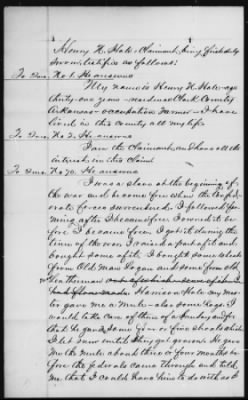 Henry H. Hale, Claimant, being first duly
sworn, testifies as follows:
To Int. No. 1. He answers
My name is Henry H. Hale - age
thirty-one years - residence Clark County
Arkansas - occupation Farmer - I have
lived in this county all my life
To Int. No 2. He answers
I am the Claimant, and have all the
interest in this claim
To Int. No 70. He answers
I was a slave at the beginning of
the war and became free when the Confed-
erate forces surrendered. I followed far-
ming after I became free. I owned it be
fore I became free. I got it during the
time of the war. I raised a part of it and
bought some of it. I bought some stock
from Old man Logan and some from old
Harrison Hale my mas
ter gave me a mule - also some hogs. I
would take care of them of a Sunday and for
that He gave Some four or five shoats which
I let run until they got grown. He gave
me the mule about three or four months be
fore the federals came through and told
me that I could have him to do with as I